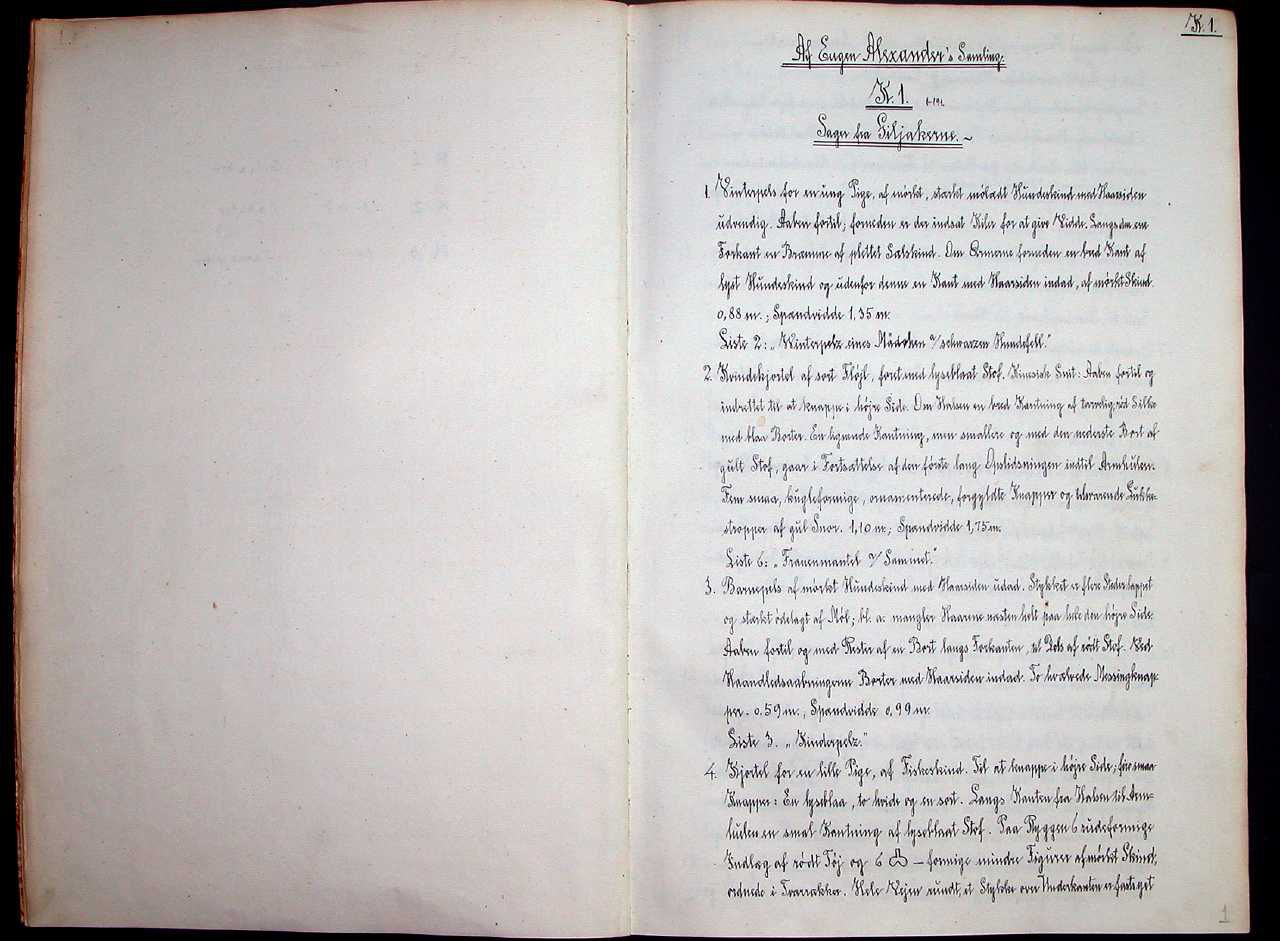 K. 1.
Af Eugen Alexander's Samling.
K. 1. 1-191.
Sager fra Giljakerne. ~
1. Vinterpels for en ung Pige, af mörkt, stærkt mölædt Hundeskind med Haarsiden
udvendig. Aaben fortil; forneden er der indsat Kiler for at give Vidde. Langs den ene
Forkant en Bræmme af plettet Sælskind. Om Ærmerne forneden en bred Kant af
lyst Hundeskind og udenfor denne en Kant med Haarsiden indad, af mörkt Skind.
0,88 m.; Spændvidde 1,35 m.
Liste 2: „Winterpelz eines Mädchen a/ schwarzen Hundefell."
2. Kvindekjortel af sort Flöjl, foret med lyseblaat Stof. Kinesisk Snit: Aaben fortil og
indrettet til at knappe i höjre Side. Om Halsen en bred Kantning af tærnig, röd Silke
med blaa Borter. En lignende Kantning, men smallere og med den nederste Bort af
gult Stof, gaar i Fortsættelse af den förste langs Opslidsningen indtil Armhulen.
Fem smaa, kugleformige, ornamenterede, forgyldte Knapper og tilsvarende Lukke-
stropper af gul Snor. 1,10 m.; Spændvidde 1,75 m.
Liste 6: „Frauenmantel a/ Sammet."
3. Barnepels af mörkt Hundeskind med Haarsiden udad. Stykket er flere Steder lappet
og stærkt ödelagt af Möl; bl. a. mangler Haarene næsten helt paa hele den höjre Side.
Aaben fortil og med Rester af en Bort langs Forkanten, til Dels af rödt Stof. Ved
Haandledsaabningerne Borter med Haarsiden indad. To hvælvede Messingknap-
per. 0,59 m.; Spændvidde 0,99 m.
Liste 3. „Kinderpelz."
4. Kjortel for en lille Pige, af Fiskeskind. Til at knappe i höjre Side; fire smaa
Knapper: En lyseblaa, to hvide og en sort. Langs Kanten fra Halsen til Arm-
hulen en smal Kantning af lyseblaat Stof. Paa Ryggen 6 rudeformige
Indlæg af rödt Töj og 6 — formige mindre Figurer af mörkt Skind,
ordnede i Tværrækker. Hele Vejen rundt, et Stykke over Underkanten er fastsyet
1